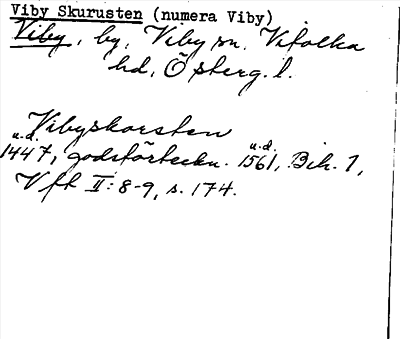 Viby Skurusten (numera Viby)
Viby, by, Viby sn. Vifolka
hd, Österg. l.
Vibyskorsten
u.d. u.d.
1447, godsförteckn. 1561, Bih. 1,
Vft II: 8-9, s. 174.